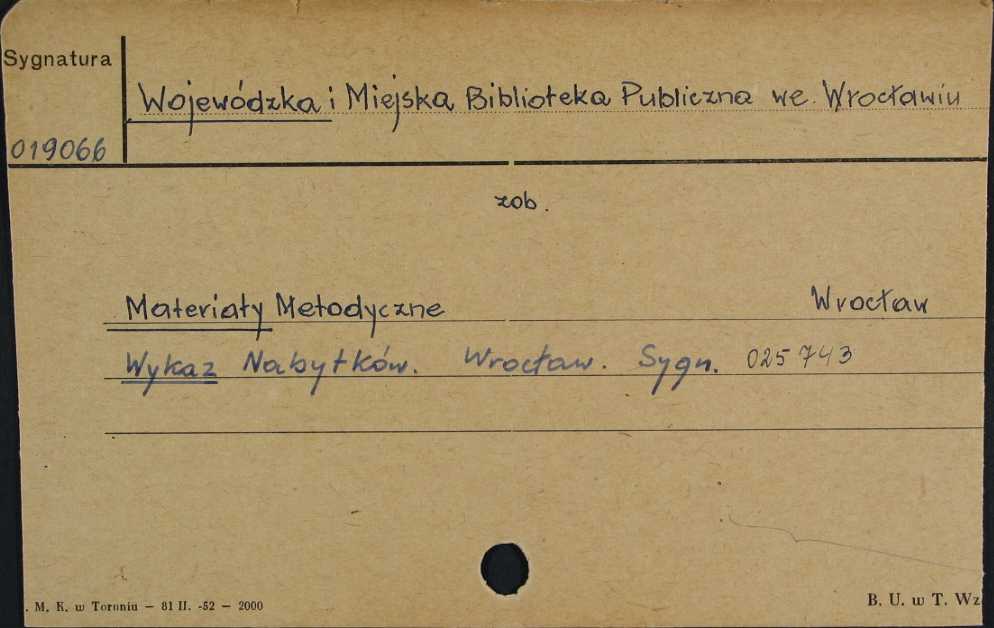 Sygnatura
Wojewódzka i Miejska Biblioteka Publiczna we Wrocławiu
019066
zob.
Materiały Metodyczne Wrocław
Wykaz Nabytków. Wrocław. Sygn. 025743
. M. K. w Toruniu — 81 II. -52 — 2000
B. U. w T. Wz